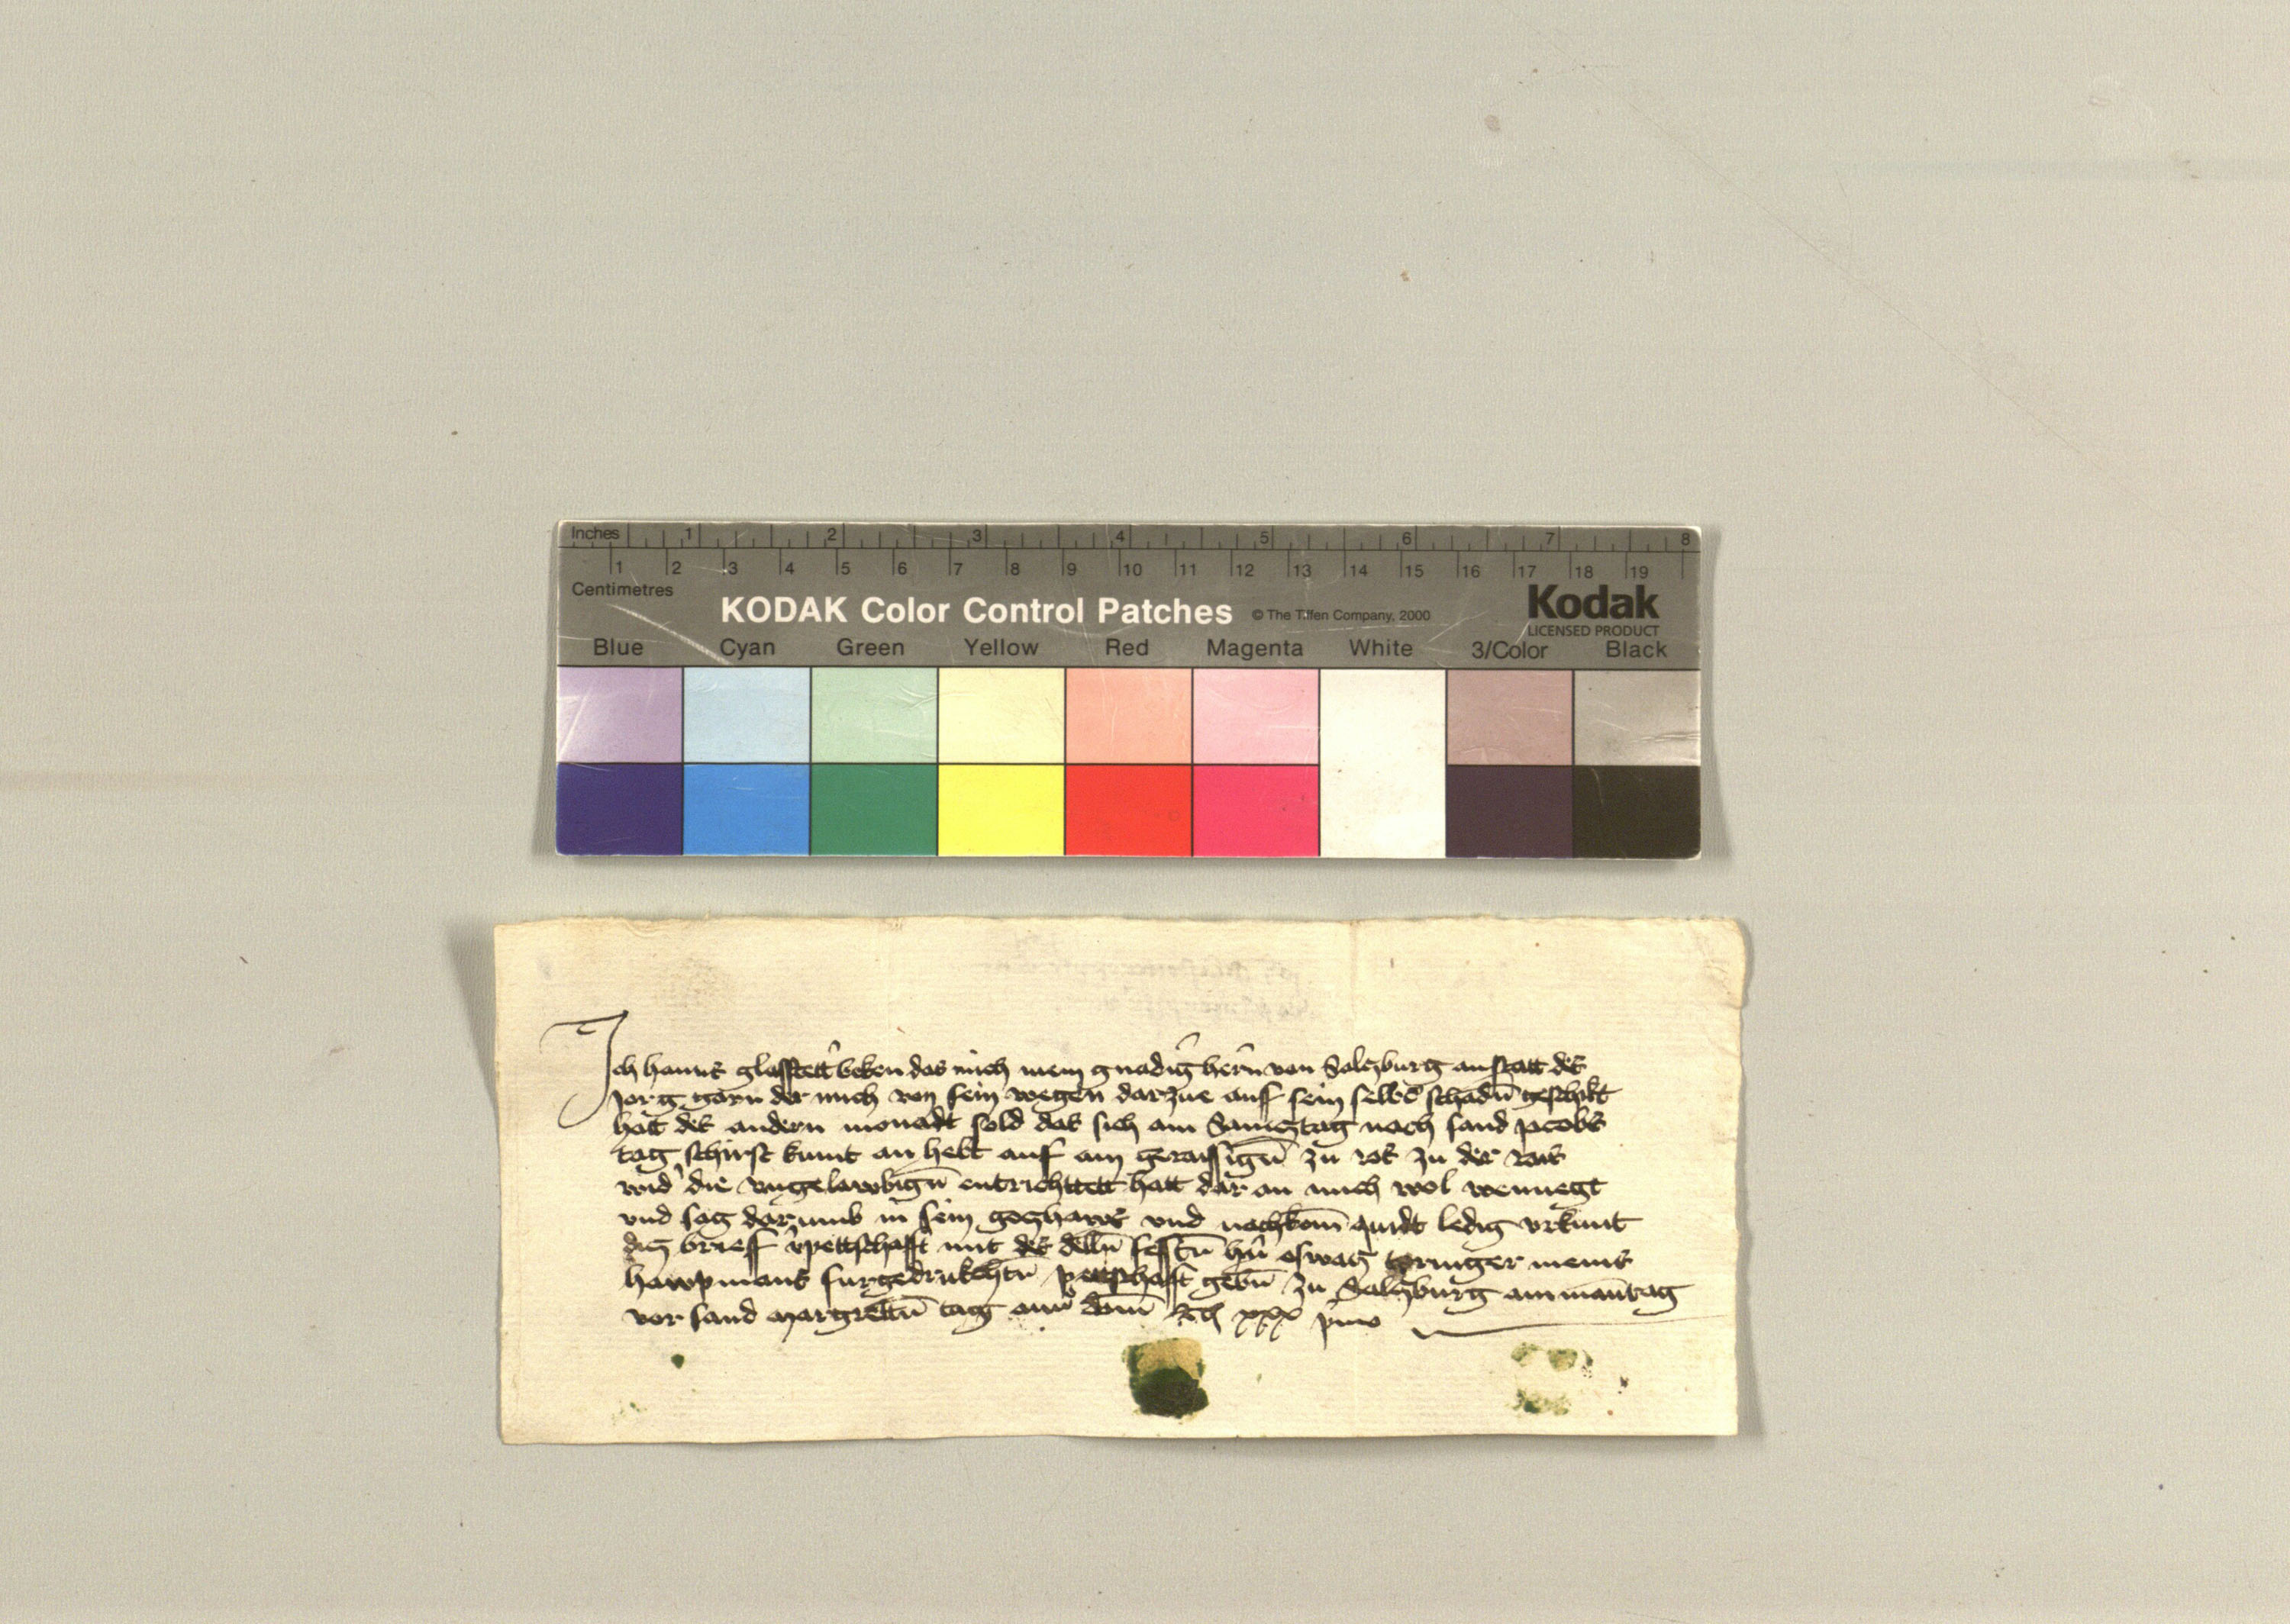 Inches 1 2 3 4 5 6 7 8
1 2 3 4 5 6 7 8 9 10 11 12 13 14 15 16 17 18 19
Centimetres
KODAK Color Control Patches © The Tiffen Company, 2000
Kodak
LICENSED PRODUCT
Blue Cyan Green Yellow Red Magenta White 3/Color Black
Ich hanns beken das mich mein gnadig̃ herñ von Salczburg anstatt des
Jorg der mich von sein wegen darzue auff sein selbs schadn̄ geschikt
hat des andern monadt sold das sich am Samcztag nach sand Jacobs
tag schirst kumt an hebt auf ain geraisign̄ zu ros zu der rais
wid' die vngelawbign̄ entrichttett hatt dar an mich wol wenuegt
vnd sag darumb in sein goczhaws vnd nachkom̄ quidt ledig vrkunt
dicz brieff mit des hn̄ oswacz toringer meins
hawpmans furgedrukchtn̄ petschafft gebn̄ zu Salczburg am man̄tag
vor sand margrettn̄ tag anno dom̄ xxx pmo